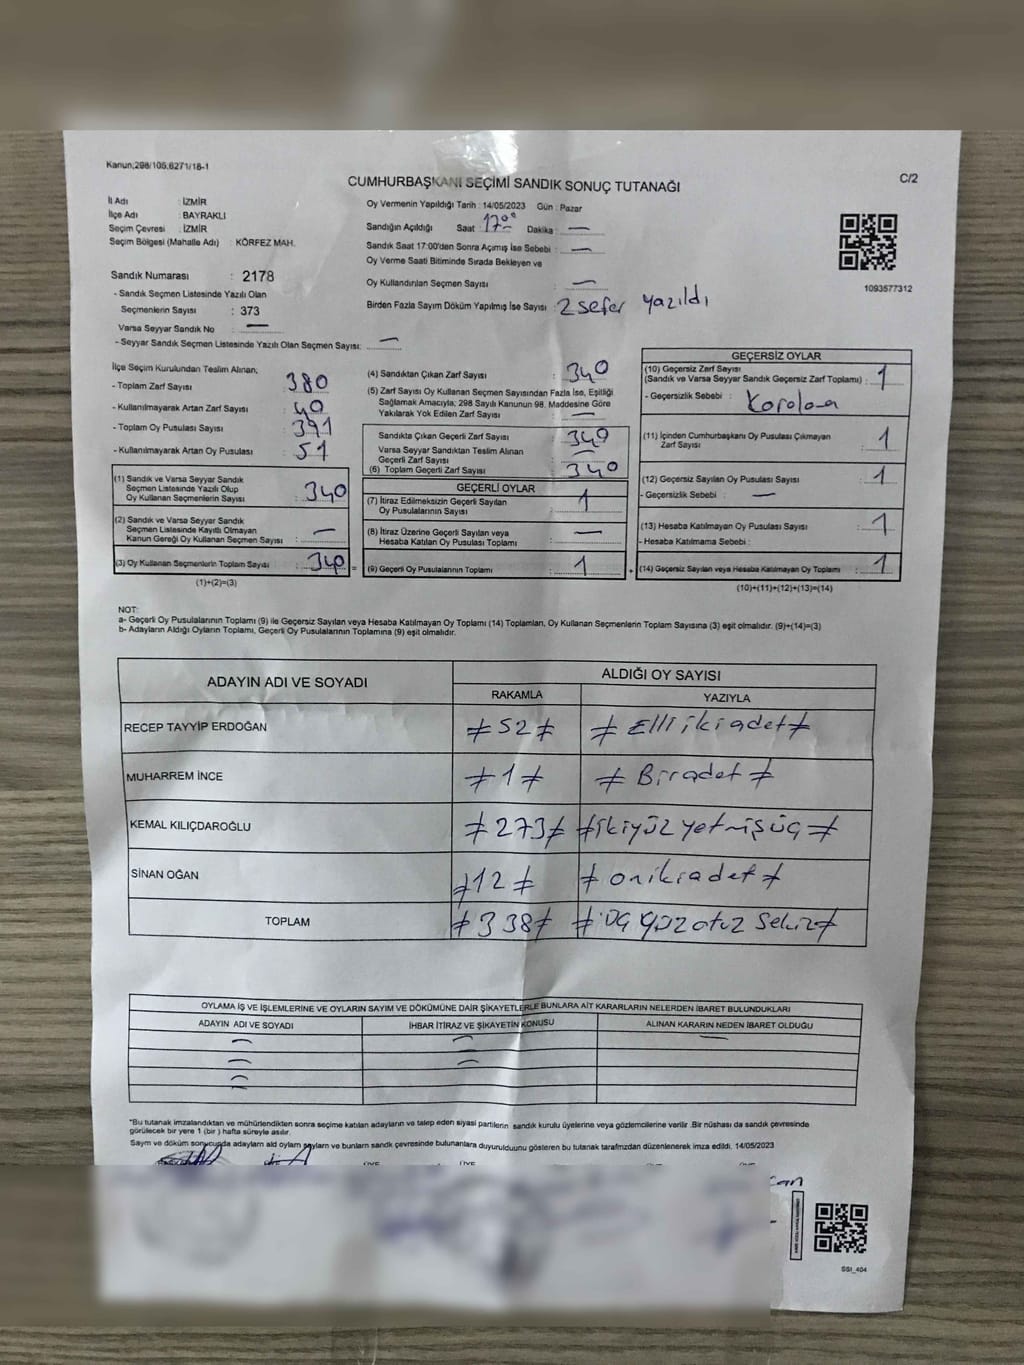 Kanun;298/105,6271/18-1
CUMHURBAŞKANI SEÇİMİ SANDIK SONUÇ TUTANAĞI
C/2
İl Adı : İZMİR
İlçe Adı : BAYRAKLI
Seçim Çevresi : İZMİR
Seçim Bölgesi (Mahalle Adı) : KÖRFEZ MAH.
Sandık Numarası : 2178
- Sandık Seçmen Listesinde Yazılı Olan
Seçmenlerin Sayısı : 373
Varsa Seyyar Sandık No : —
- Seyyar Sandık Seçmen Listesinde Yazılı Olan Seçmen Sayısı: —
Oy Vermenin Yapıldığı Tarih : 14/05/2023 Gün : Pazar
Sandığın Açıldığı Saat : 17°° Dakika : —
Sandık Saat 17:00'den Sonra Açımış İse Sebebi : —
Oy Verme Saati Bitiminde Sırada Bekleyen ve
Oy Kullandırılan Seçmen Sayısı : —
Birden Fazla Sayım Döküm Yapılmış İse Sayısı : 2 sefer yazıldı
1093577312
İlçe Seçim Kurulundan Teslim Alınan;
- Toplam Zarf Sayısı : 380
- Kullanılmayarak Artan Zarf Sayısı : 40
- Toplam Oy Pusulası Sayısı : 391
- Kullanılmayarak Artan Oy Pusulası : 51
(1) Sandık ve Varsa Seyyar Sandık
Seçmen Listesinde Yazılı Olup
Oy Kullanan Seçmenlerin Sayısı : 340
(2) Sandık ve Varsa Seyyar Sandık
Seçmen Listesinde Kayıtlı Olmayan
Kanun Gereği Oy Kullanan Seçmen Sayısı : —
(3) Oy Kullanan Seçmenlerin Toplam Sayısı : 340 =
(1)+(2)=(3)
(4) Sandıktan Çıkan Zarf Sayısı : 340
(5) Zarf Sayısı Oy Kullanan Seçmen Sayısından Fazla İse, Eşitliği
Sağlamak Amacıyla; 298 Sayılı Kanunun 98. Maddesine Göre
Yakılarak Yok Edilen Zarf Sayısı : —
Sandıkta Çıkan Geçerli Zarf Sayısı : 340
Varsa Seyyar Sandıktan Teslim Alınan
Geçerli Zarf Sayısı : —
(6) Toplam Geçerli Zarf Sayısı : 340
GEÇERLİ OYLAR
(7) İtiraz Edilmeksizin Geçerli Sayılan
Oy Pusulalarının Sayısı : 1
(8) İtiraz Üzerine Geçerli Sayılan veya
Hesaba Katılan Oy Pusulası Toplamı : —
(9) Geçerli Oy Pusulalarının Toplamı : 1 +
GEÇERSİZ OYLAR
(10) Geçersiz Zarf Sayısı
(Sandık ve Varsa Seyyar Sandık Geçersiz Zarf Toplamı) : 1
- Geçersizlik Sebebi :
(11) İçinden Cumhurbaşkanı Oy Pusulası Çıkmayan
Zarf Sayısı : 1
(12) Geçersiz Sayılan Oy Pusulası Sayısı : 1
- Geçersizlik Sebebi : —
(13) Hesaba Katılmayan Oy Pusulası Sayısı : 1
- Hesaba Katılmama Sebebi :
(14) Geçersiz Sayılan veya Hesaba Katılmayan Oy Toplamı : 1
(10)+(11)+(12)+(13)=(14)
NOT:
a- Geçerli Oy Pusulalarının Toplamı (9) ile Geçersiz Sayılan veya Hesaba Katılmayan Oy Toplamı (14) Toplamları, Oy Kullanan Seçmenlerin Toplam Sayısına (3) eşit olmalıdır. (9)+(14)=(3)
b- Adayların Aldığı Oyların Toplamı, Geçerli Oy Pusulalarının Toplamına (9) eşit olmalıdır.
ADAYIN ADI VE SOYADI
ALDIĞI OY SAYISI
RAKAMLA YAZIYLA
RECEP TAYYİP ERDOĞAN ≠ 52 ≠ ≠ Elli iki adet ≠
MUHARREM İNCE ≠ 1 ≠ ≠ Bir adet ≠
KEMAL KILIÇDAROĞLU ≠ 273 ≠ ≠ ikiyüz yetmişüç ≠
SİNAN OĞAN ≠ 12 ≠ ≠ onikiadet ≠
TOPLAM ≠ 338 ≠ ≠ üç yüz otuz sekiz ≠
OYLAMA İŞ VE İŞLEMLERİNE VE OYLARIN SAYIM VE DÖKÜMÜNE DAİR ŞİKAYETLERLE BUNLARA AİT KARARLARIN NELERDEN İBARET BULUNDUKLARI
ADAYIN ADI VE SOYADI İHBAR İTİRAZ VE ŞİKAYETİN KONUSU ALINAN KARARIN NEDEN İBARET OLDUĞU
"Bu tutanak imzalandıktan ve mühürlendikten sonra seçime katılan adayların ve talep eden siyasi partilerin sandık kurulu üyelerine veya gözlemcilerine verilir .Bir nüshası da sandık çevresinde
görülecek bir yere 1 (bir ) hafta süreyle asılır.
Sayım ve döküm sonucunda adayların aldı oyların sayıları ve bunların sandık çevresinde bulunanlara duyurulduunu gösteren bu tutanak tarafımzdan düzenlenerek imza edildi. 14/05/2023
ÜYE ÜYE
SSI_404